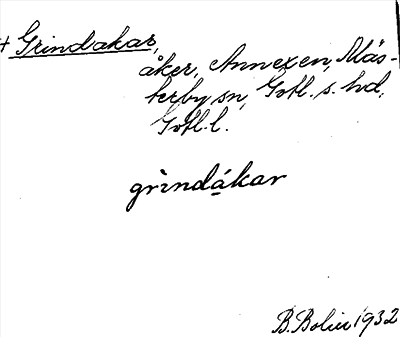 + Grindakar,
åker, Annexen, Mäs-
terby sn, Gotl. s. hd,
Gotl. l.
grindákar
B. Bolin 1932